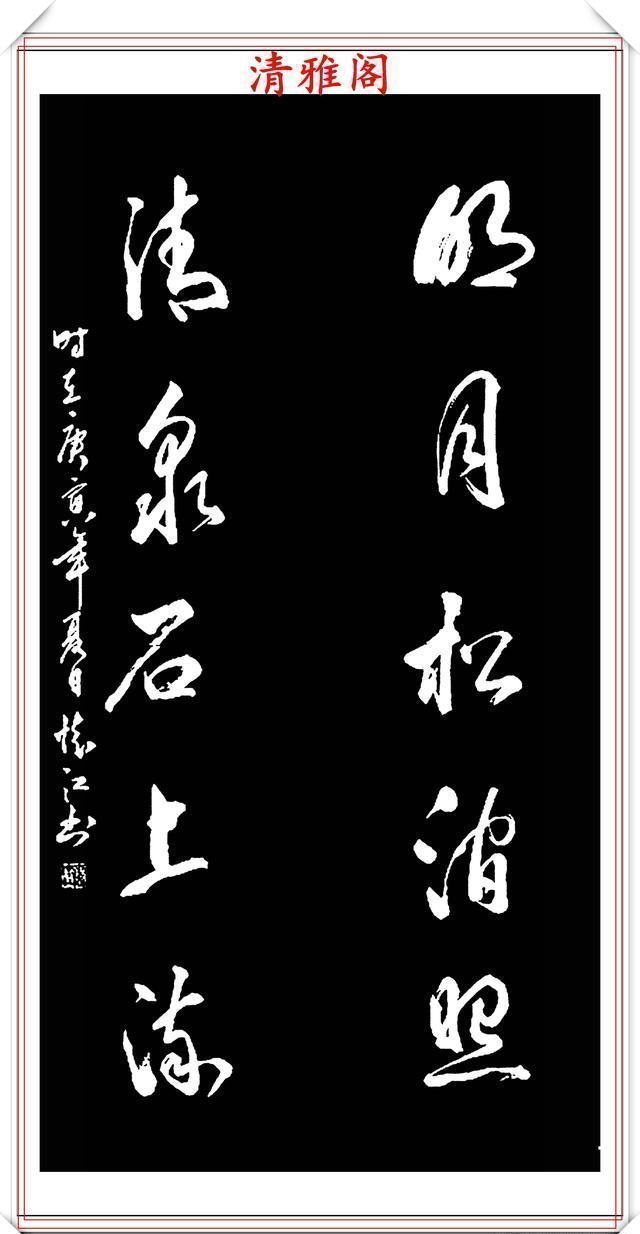 清雅阁
明月松間照
清泉石上流
时在庚寅年夏日懷江书